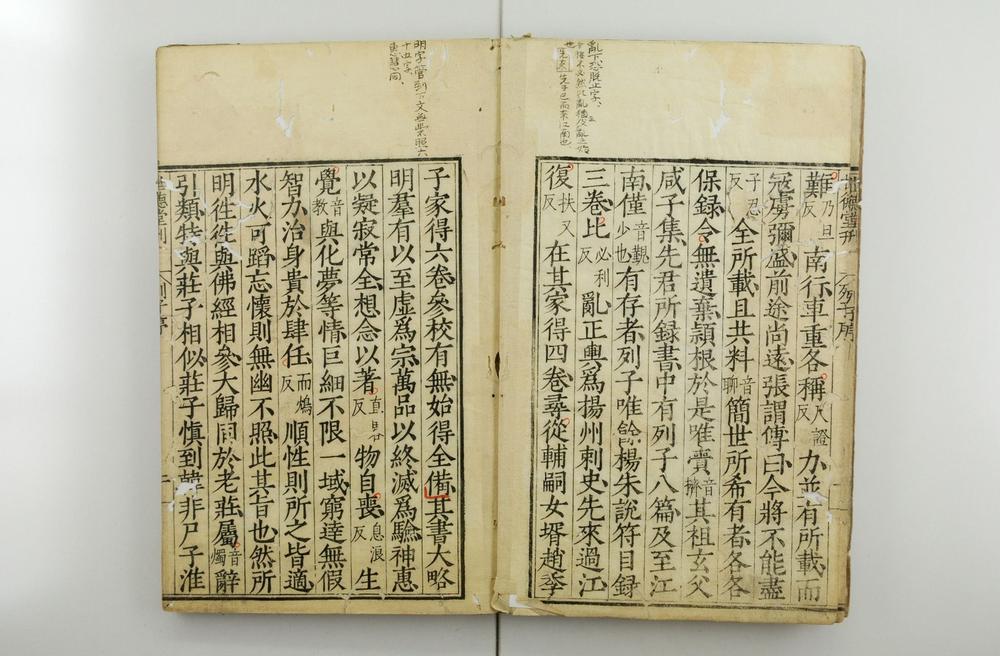 亂下恐脫止字、
難乃旦反南行車重各稱尺證反力並有所載而
冦虜彌盛前途尚逺張謂傅曰今將不能盡
子忍反全所載且共料音聊簡世所希有者各各
保録令無遺棄潁根於是唯賷音擠其祖玄父
咸子集先君所録書中有列子八篇及至江
南僅音覲少也有存者列子唯餘楊朱說符目録
三卷比必利反亂正輿爲揚州刺史先來過江
復扶又反在其家得四卷尋從輔嗣女壻趙季
明字管到下文
十五字、
惠慧同、
子家得六卷參校有無始得全備其書大略
明羣有以至虛爲宗萬品以終滅爲驗神惠
以凝寂常全想念以著直畧反物自喪息浪反生
覺音教與化夢等情巨細不限一域窮達無假
智力治身貴於肆任而鴆反順性則所之皆適
水火可蹈忘懷則無幽不照此其旨也然所
明往往與佛經相參大歸同於老莊屬音燭辭
引類特與莊子相似莊子慎到韓非尸子淮